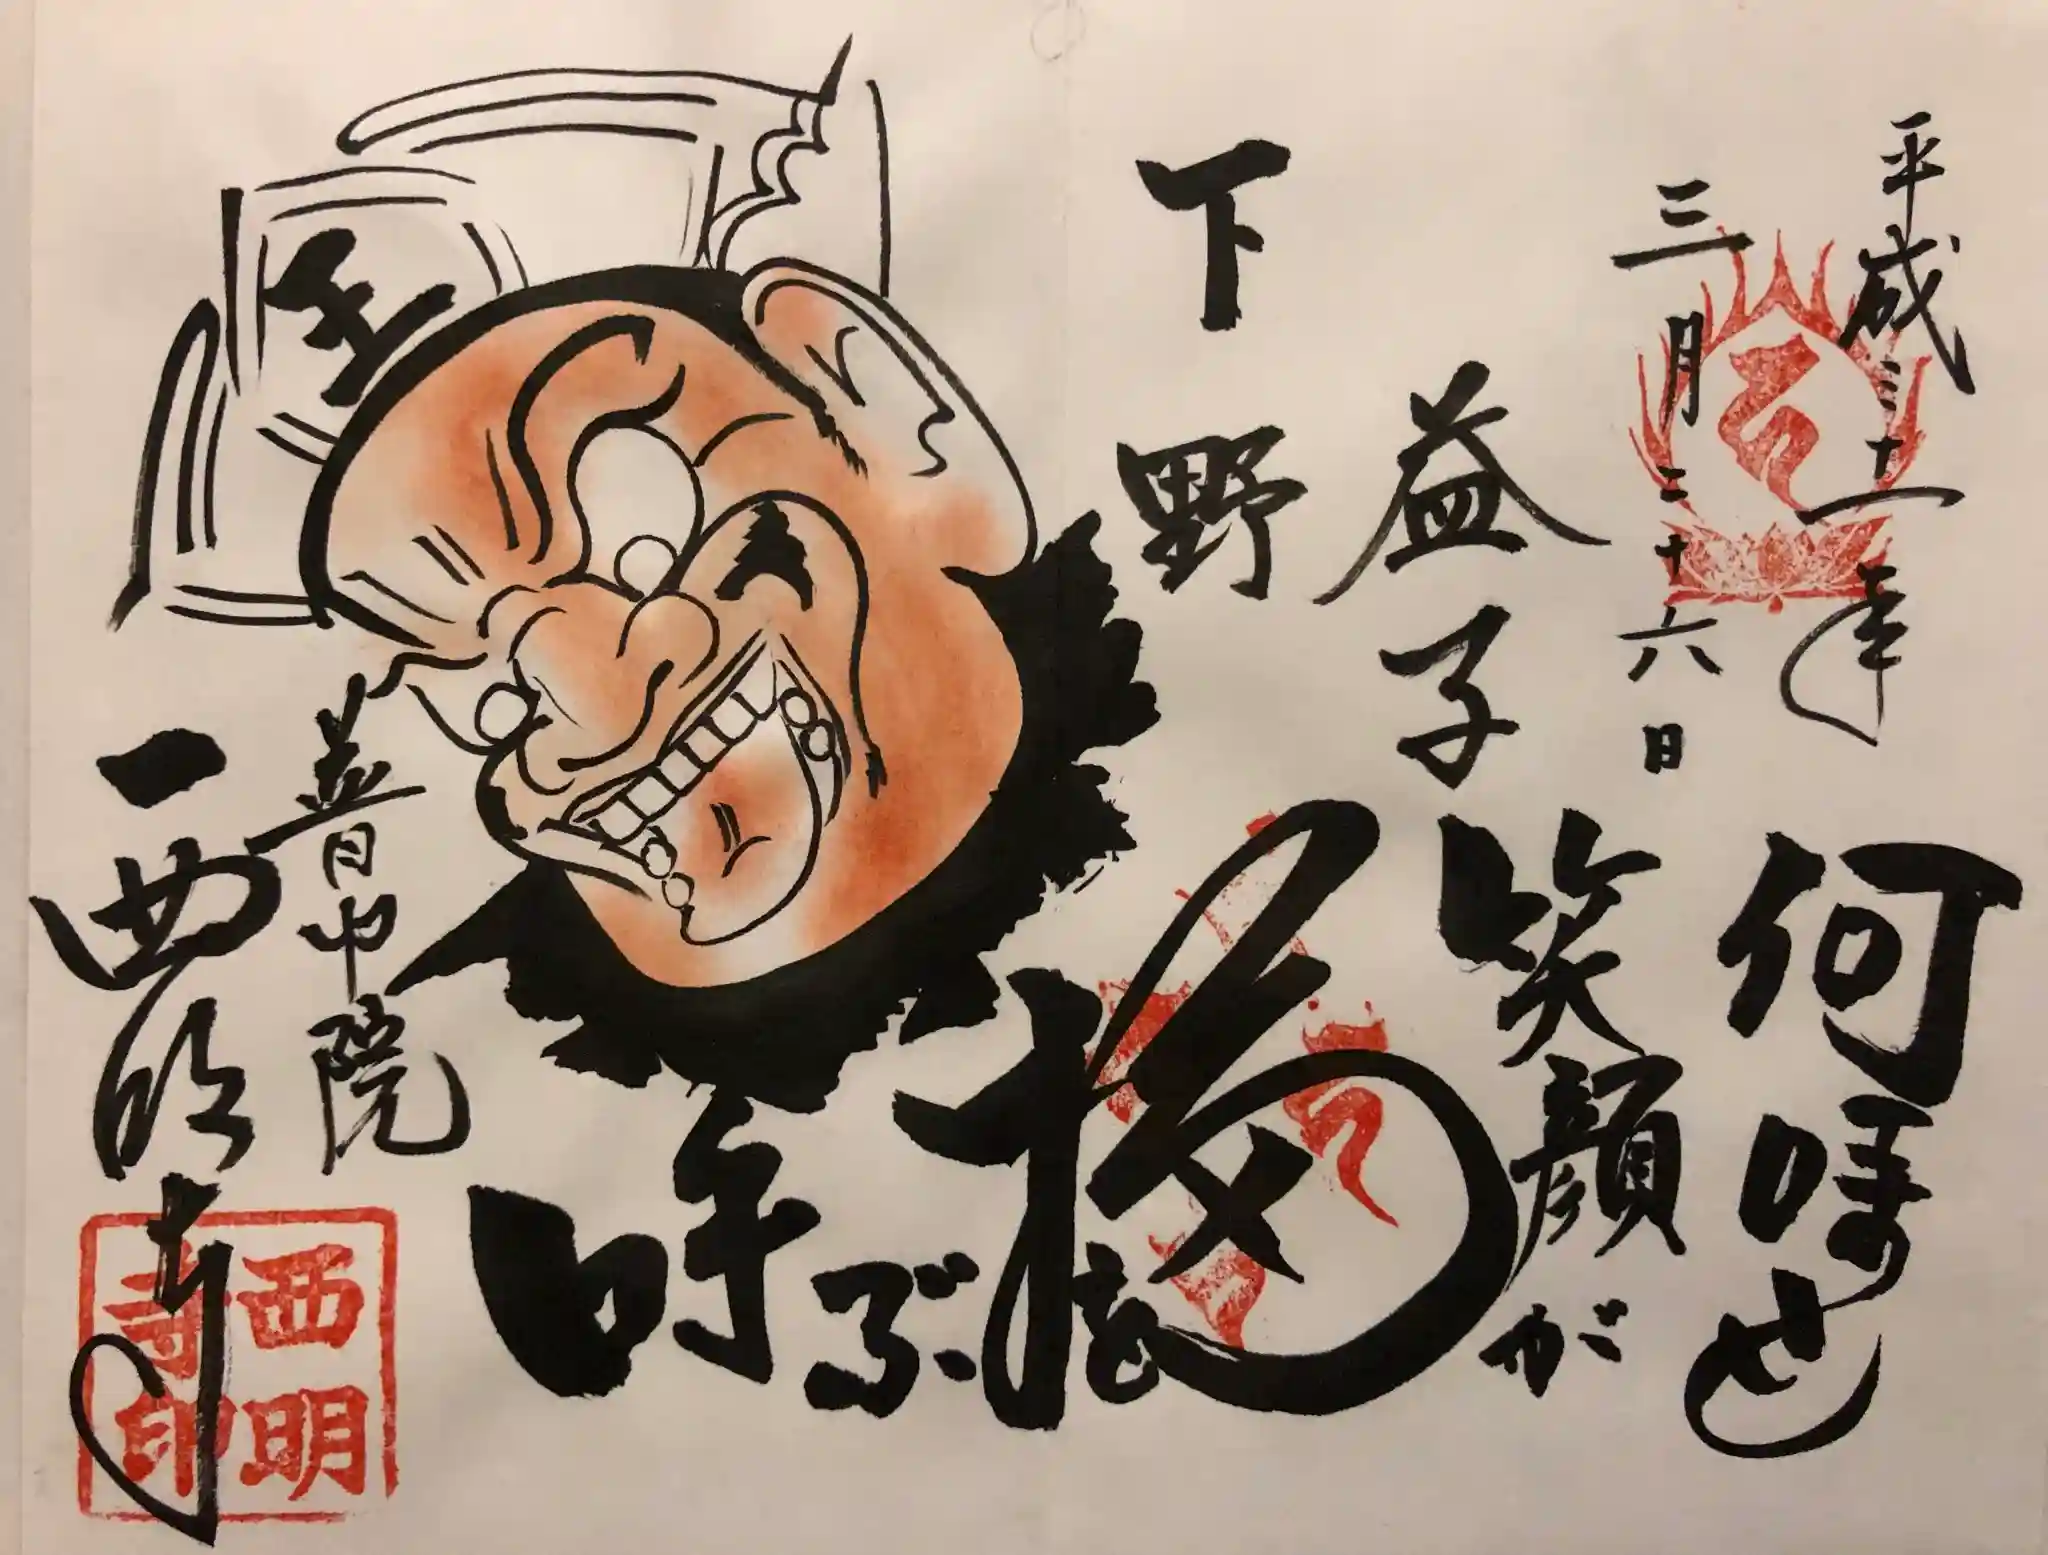 平成三十一年
三月二十六日
下野
益子
何時也
笑顔が
福を
呼ぶ
王
普門院
一西明寺
西明
寺印